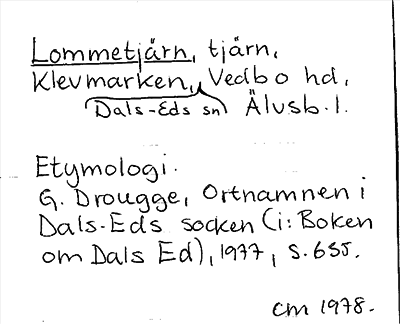 Lommetjärn, tjärn,
Klevmarken, Vedbo hd,
Dals-Eds sn Älvsb. l.
Etymologi.
G. Drougge, Ortnamnen i
Dals-Eds socken (i: Boken
om Dals Ed), 1977, s. 655.
CM 1978.